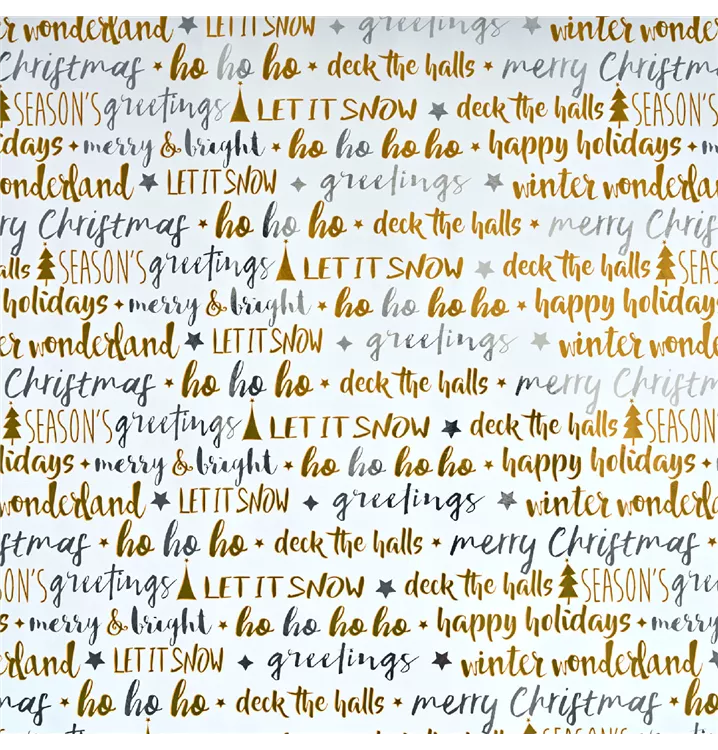 r wonderland LET IT SNOW greetings winter wonde
Christmas ho ho ho deck the halls merry Christm
SEASON'S greetings LET IT SNOW deck the halls SEASON'S
idays merry & bright ho ho ho ho happy holidays m
onderland LET IT SNOW greetings winter wonderla
ry Christmas ho ho ho deck the halls merry Chris
alls SEASON'S greetings LET IT SNOW deck the halls SEAS
holidays merry & bright ho ho ho ho happy holiday
er wonderland LET IT SNOW greetings winter wonde
Christmas ho ho ho deck the halls merry Christm
SEASON'S greetings LET IT SNOW deck the halls SEASON
lidays merry & bright ho ho ho ho happy holidays
wonderland LET IT SNOW greetings winter wonderl
stmas ho ho ho deck the halls merry Christmas
ON'S greetings LET IT SNOW deck the halls SEASON'S gre
s merry & bright ho ho ho ho happy holidays merry
erland LET IT SNOW greetings winter wonderland
mas ho ho ho deck the halls merry Christmas ho